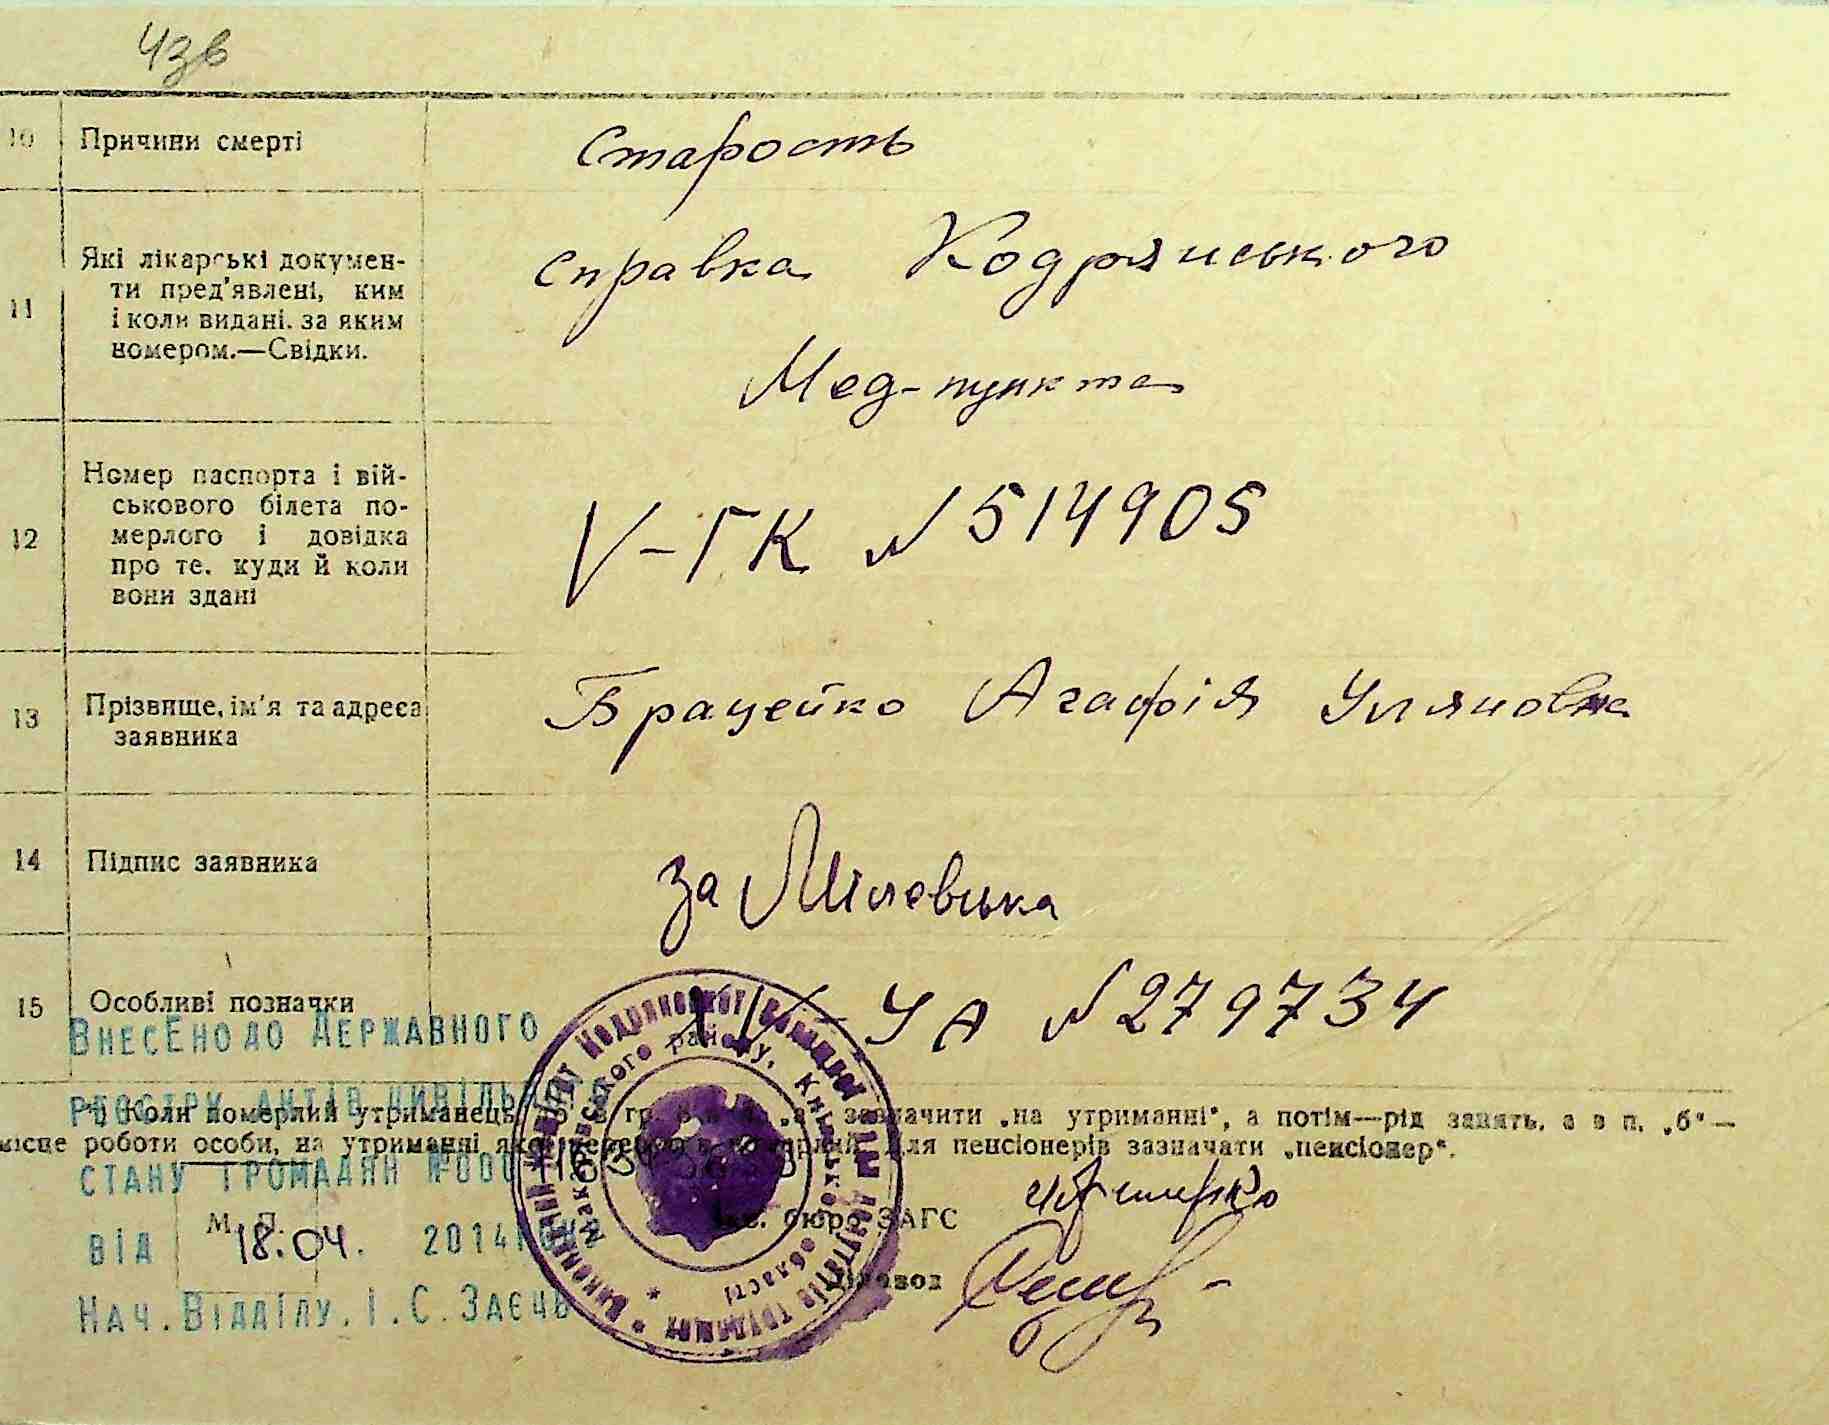 43в
10 Причини смерті Старость
11 Які лікарські докумен-
ти пред'явлені, ким
і коли видані. за яким
номером.—Свідки.
справка Кодрянського
Мед-пункта
12 Номер паспорта і вій-
ськового білета по-
мерлого і довідка
про те. куди й коли
вони здані
V-ГК № 514905
13 Прізвище, ім'я та адреса
заявника
Брацейко Агафія Уляновна
14 Підпис заявника за Мілевська
15 Особливі позначки IV-УА № 279734
Внесено до Державного
реєстру актів цивіль
*) Коли померлий утриманець, в гр. зазначити „на утриманні“, а потім—рід занять, а в п. „б“—
місце роботи особи, на утриманні якої перебував померлий. Для пенсіонерів зазначати „пенсіонер“.
стану громадян №000
М. П.
бюро ЗАГС
від 18.04. 2014
Діловод
Нач. Відділу. І. С. Заєць
Виконавчий комітет Кодрянської селищної ради депутатів трудящих
Макарівського району, Київської області